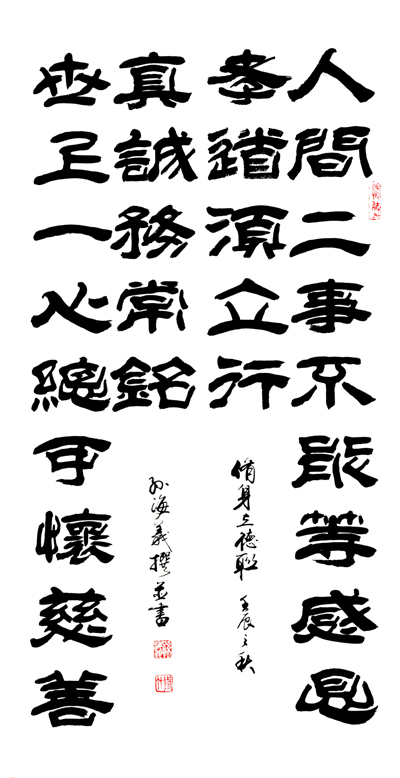 人間二事不能等感恩
孝道須立行
脩身立德聯 壬辰之秋
世上一心總可懷慈善
真誠務常銘
孙海義撰並書